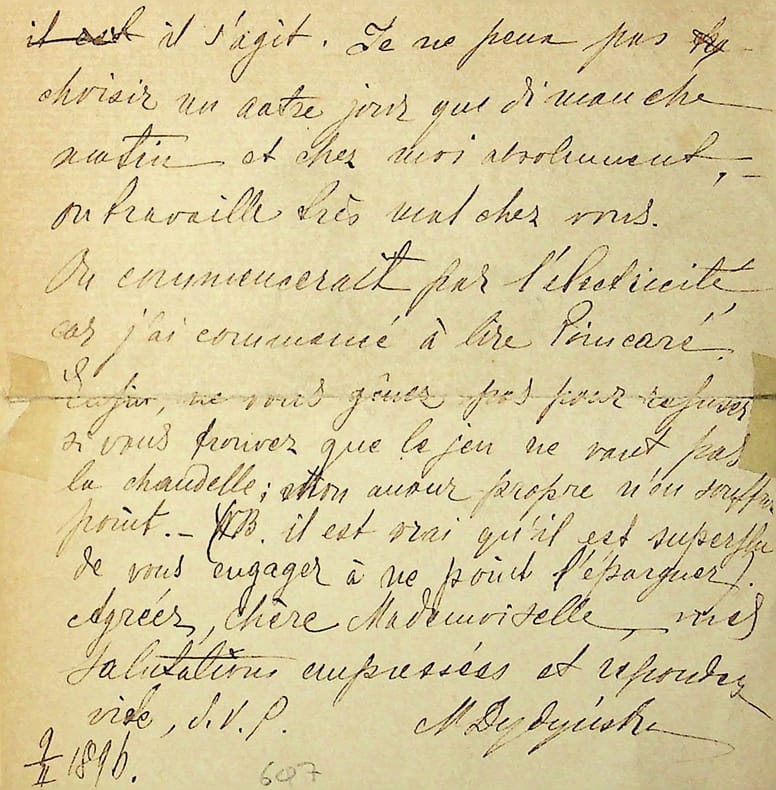 ~~il est~~ il s'agit. Je ne peux pas
choisir un autre jour que dimanche
matin et chez moi absolument, –
on travaille très mal chez vous.
On commencerait par l'électricité,
car j'ai commencé à lire Poincaré.
Enfin, ne vous gênez pas pour refuser
si vous trouvez que le jeu ne vaut pas
la chandelle; mon amour propre n'en souffre
point. – (NB. il est vrai qu'il est superflu
de vous engager à ne point l'épargner).
Agréez, chère Mademoiselle, mes
salutations empressées et répondez
vite, s.v.p. M Dydyńska
9/II 1896.
607